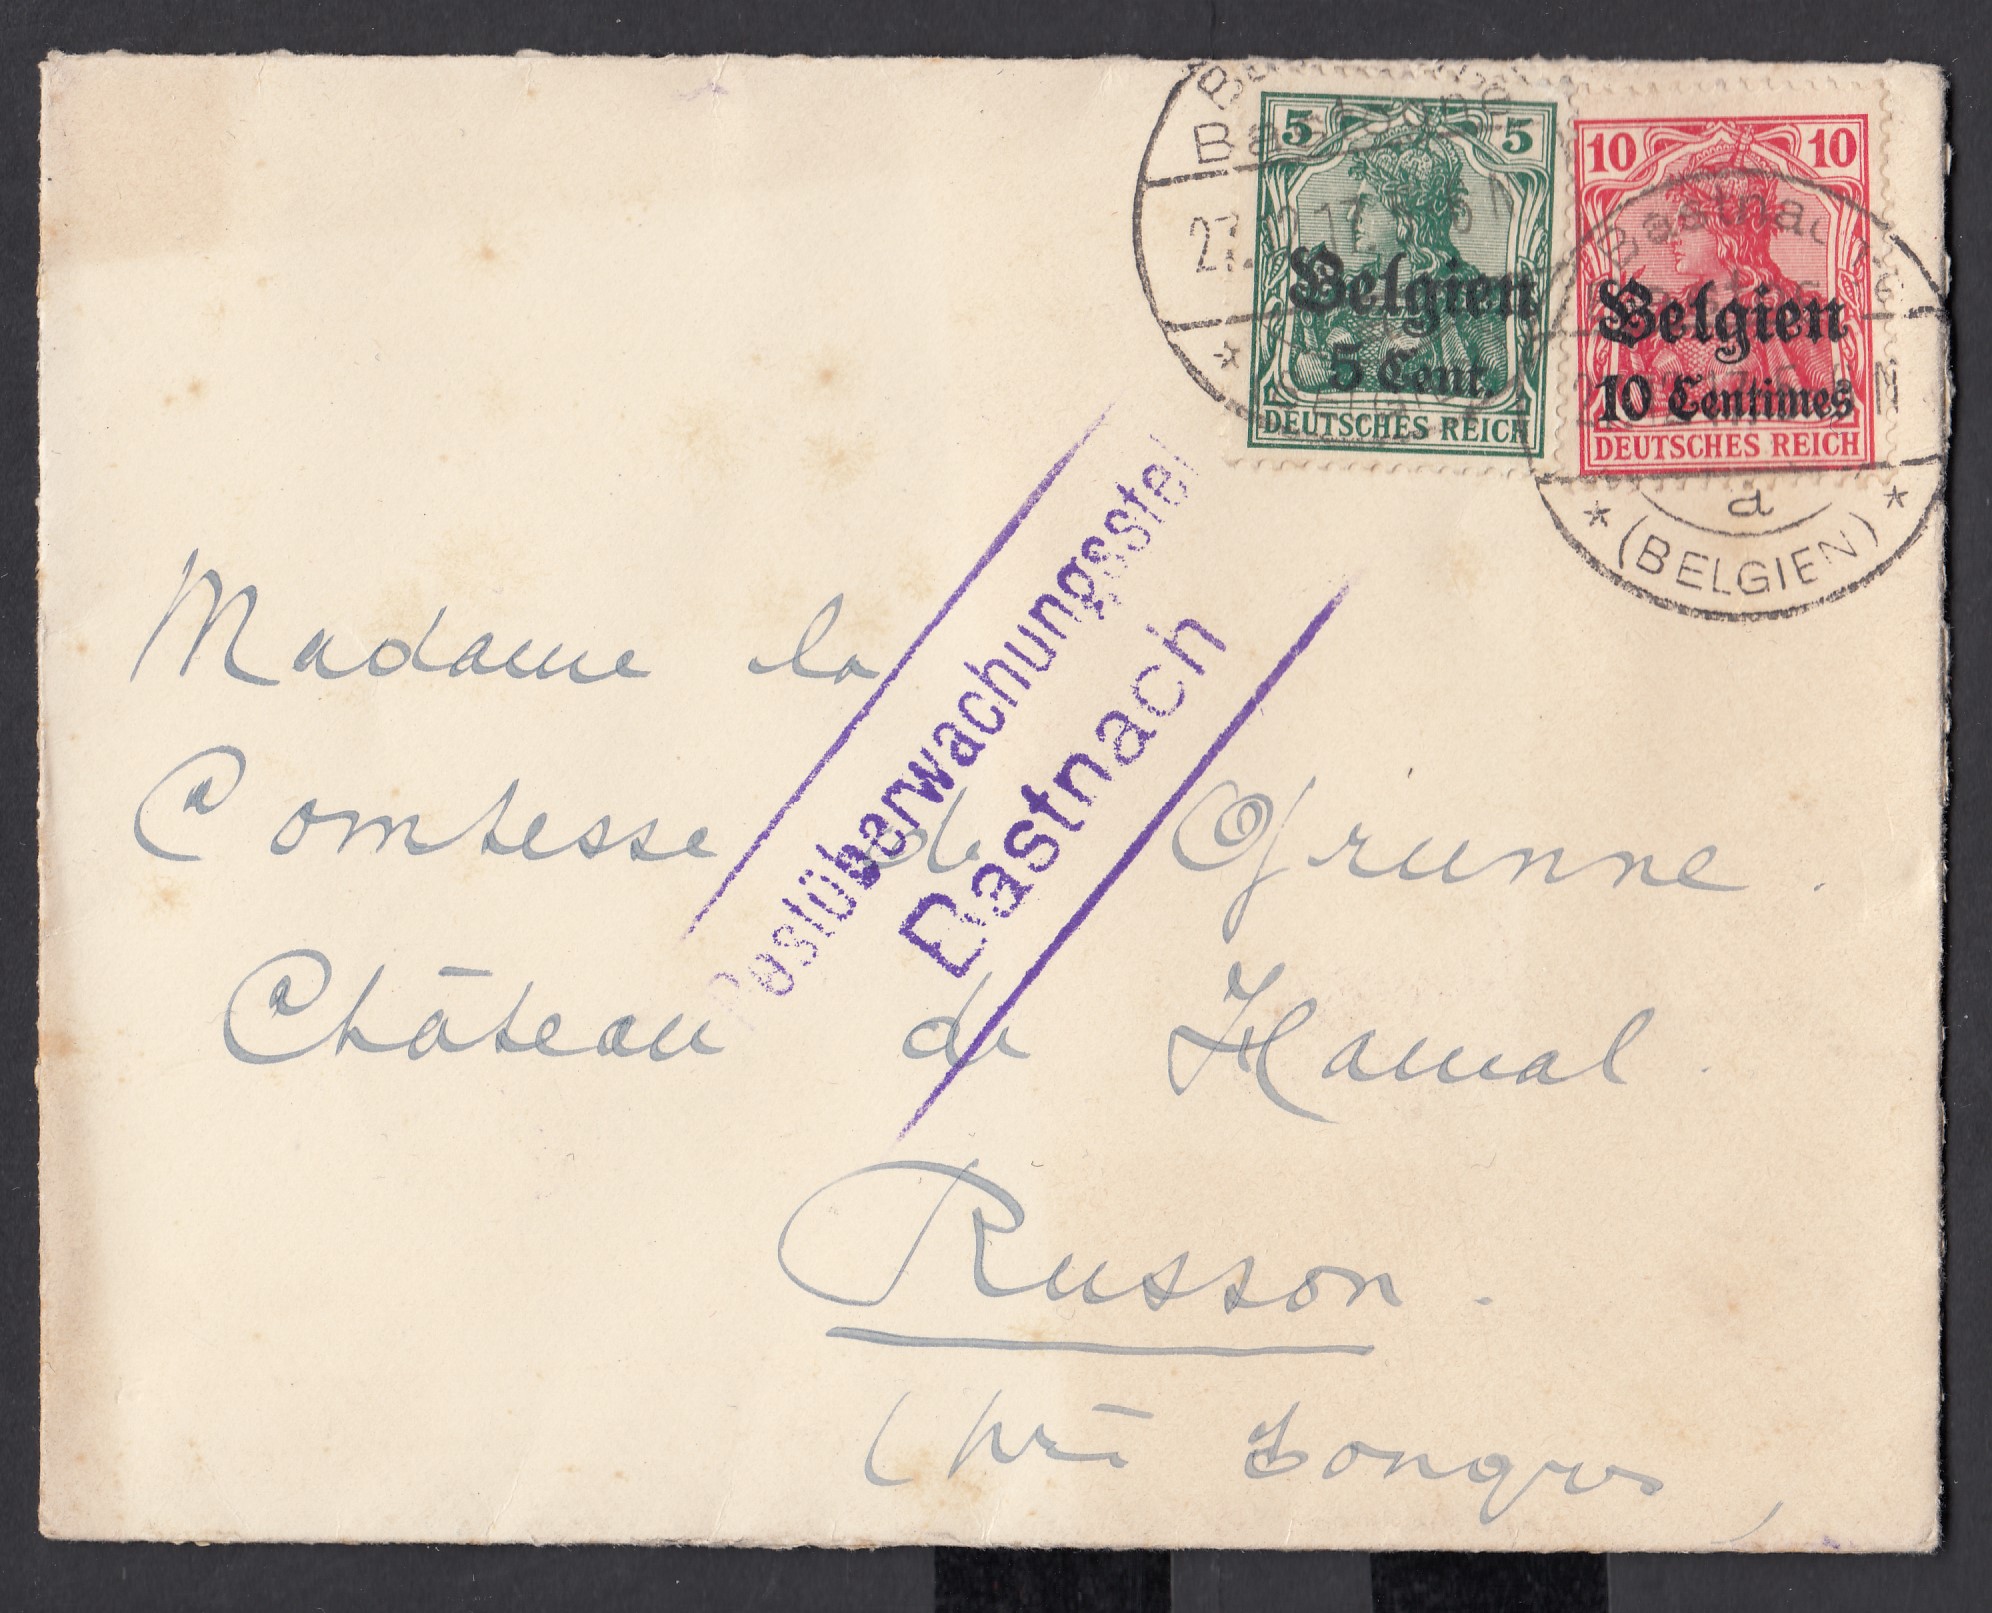 Bastnach
Bastogne
27.12.17.
5 5
Belgien
5 Cent.
DEUTSCHES REICH
10 10
Belgien
10 Centimes
DEUTSCHES REICH
Bastnach
a
* (BELGIEN) *
Postüberwachungsstel
Bastnach
Madame la
Comtesse de Grunne.
Château de Hamal.
Russon.
(près Tongres